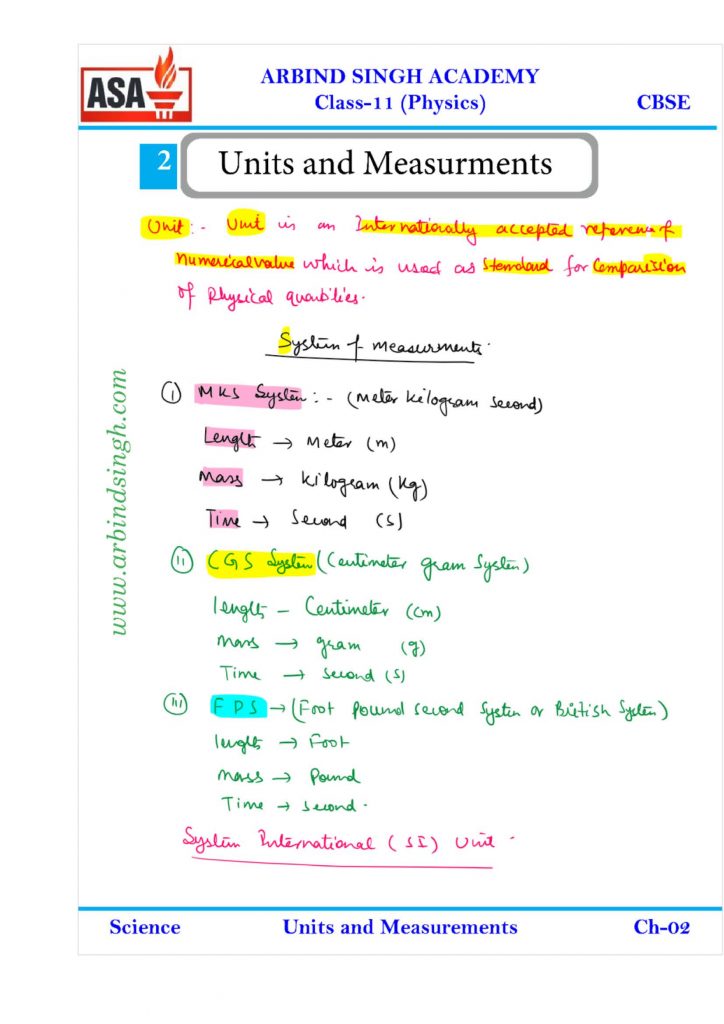 ASA
ARBIND SINGH ACADEMY
Class-11 (Physics)
CBSE
2
Units and Measurments
Unit:- Unit is an Internationally accepted reference of
Numerical value which is used as Standard for Comparision
of Physical quantities.
System of measurments.
www.arbindsingh.com
(i) MKS System:- (Meter Kilogram Second)
Length → Meter (m)
Mass → Kilogram (Kg)
Time → Second (s)
(ii) CGS System (Centimeter gram System)
length - Centimeter (cm)
Mass → gram (g)
Time → Second (s)
(iii) FPS → (Foot Pound Second System or British System)
length → Foot
Mass → Pound
Time → Second.
System International (SI) Unit.
Science
Units and Measurements
Ch-02